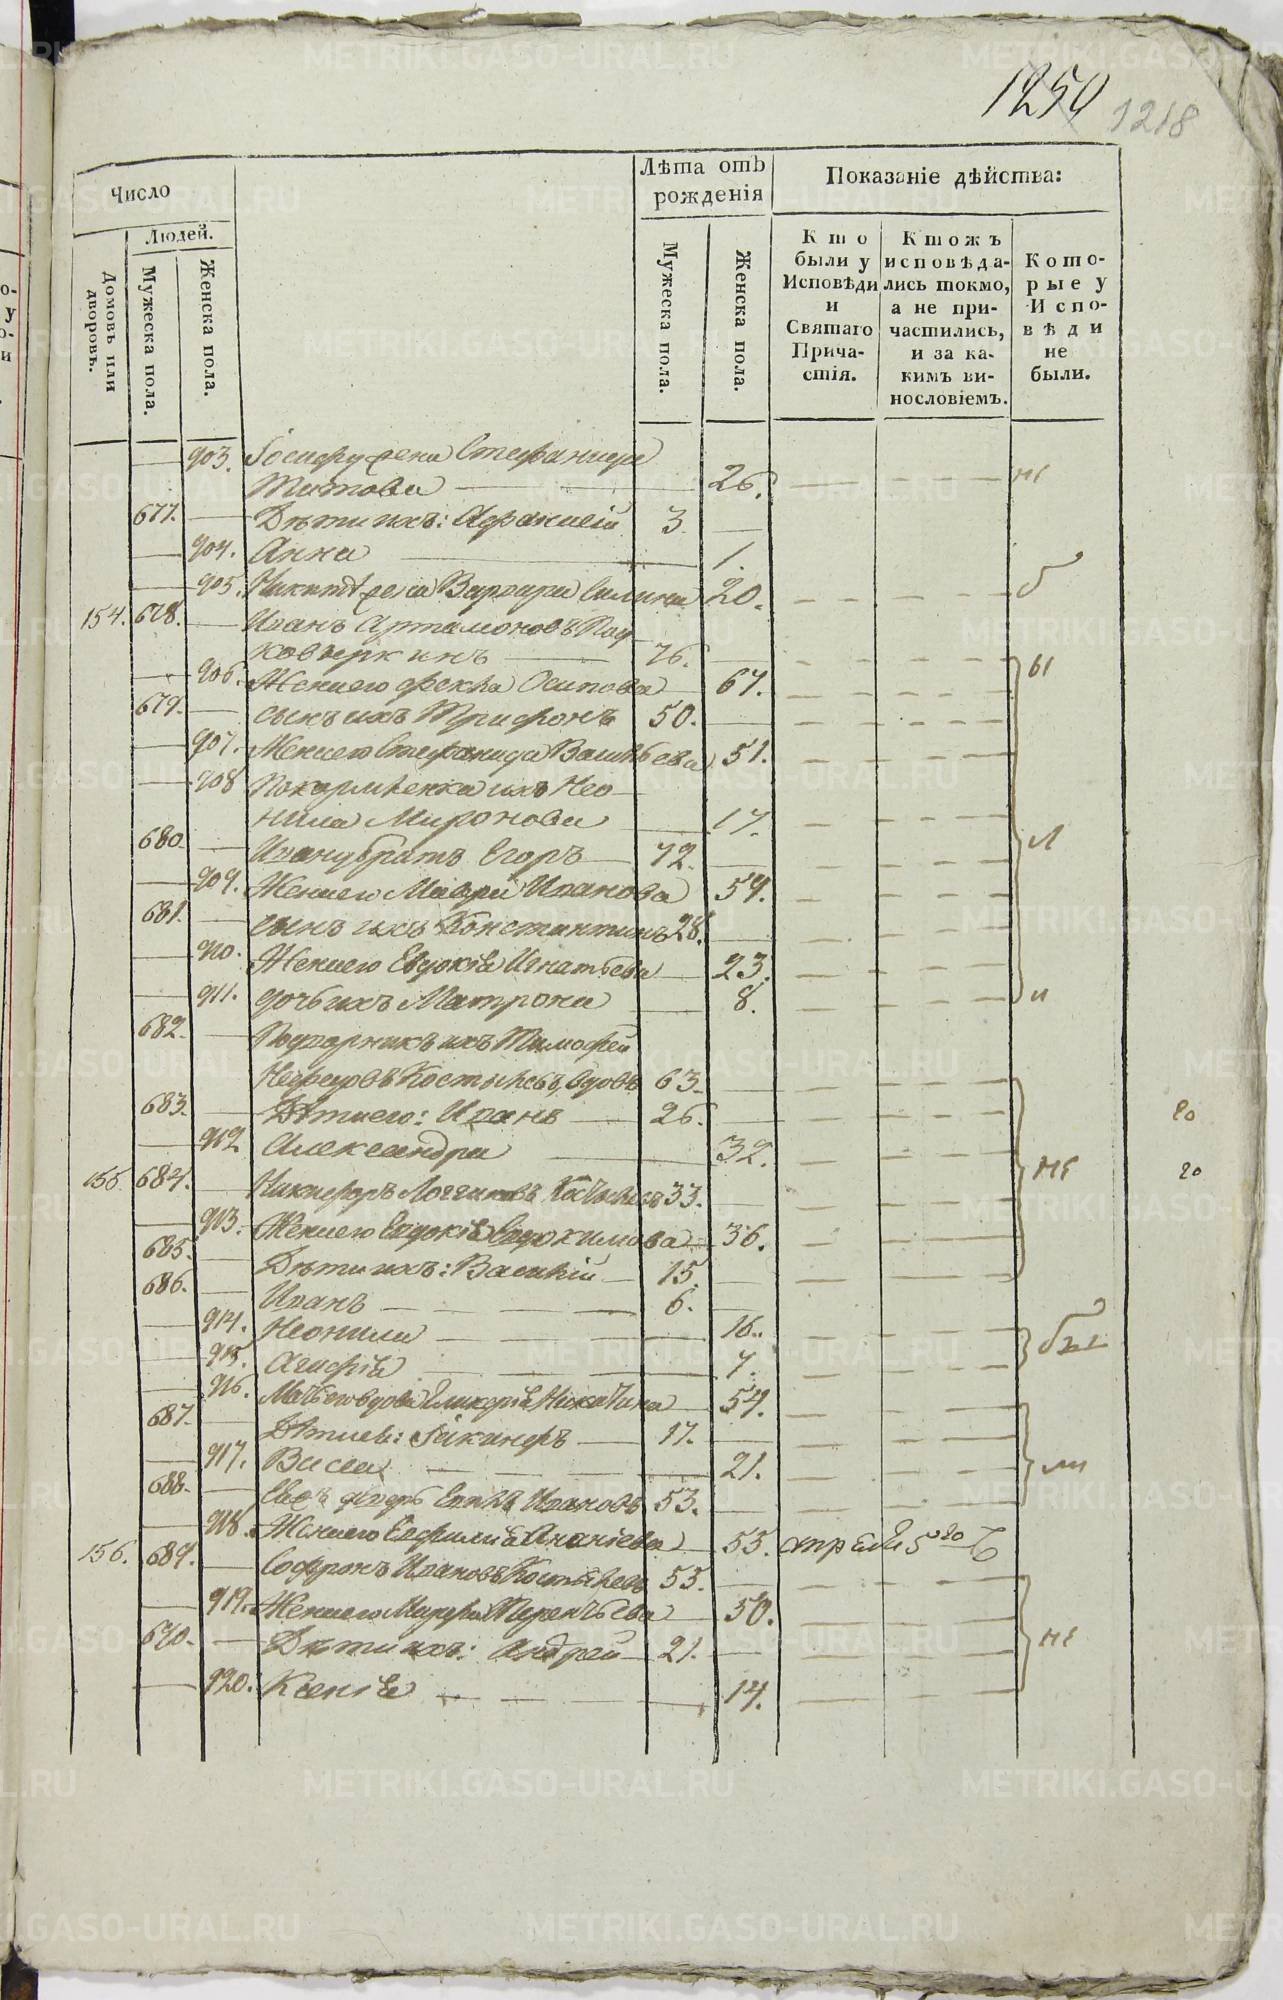 1250 1218
Число
Людей.
Домовъ или дворовъ.
Мужеска пола.
Женска пола.
Лѣта отъ рожденія
Мужеска пола.
Женска пола.
Показаніе дѣйства:
Кто были у Исповѣди и Святаго Причастія.
Ктожъ исповѣдались токмо, а не причастились, и за какимъ винословіемъ.
Которые у Исповѣди не были.
903. жена Стефанида
Титова 26. не
677. Дѣти ихъ: 3.
904. Анна 1.
905. жена Варвара 20. б
154. 678. Иванъ Артамоновъ Под
ковыркинъ 76.
906. Жена его Фекла Осипова 67. ы
679. сынъ ихъ Трифонъ 50.
907. Жена его Стефанида Васильева 51.
908 ихъ Нео
нила Миронова 17.
680. Ивану братъ Егоръ 72. л
909. Жена его Мавра Иванова 54.
681. сынъ ихъ Константинъ 28.
910. Жена его Евдокія Игнатьева 23.
911. дочь ихъ Матрона 8. и
682. Подворникъ ихъ Тимофей
вдовъ 63.
683. Дѣти его: Иванъ 26. 20
912 Александра 32.
155. 684. Никифоръ 33. не 20
913. Жена его Евдокія Евдокимова 36.
685. Дѣти ихъ: Василій 15.
686. Иванъ 6.
914. Неонила 16.
915. Агафія 7. бы
916. Мать его вдова Гликерія Никитина 54.
687. Дѣти ея: 17.
917. Васса 21. ли
688. Иванов 53.
918. Жена его Евфимія Ананіева 55. апреля 5
156. 689. Софронъ Ивановъ 55.
919. Жена его Марфа Терентьева 50.
690. Дѣти ихъ: Андрей 21. не
920. Ксенія 14.
METRIKI.GASO-URAL.RU